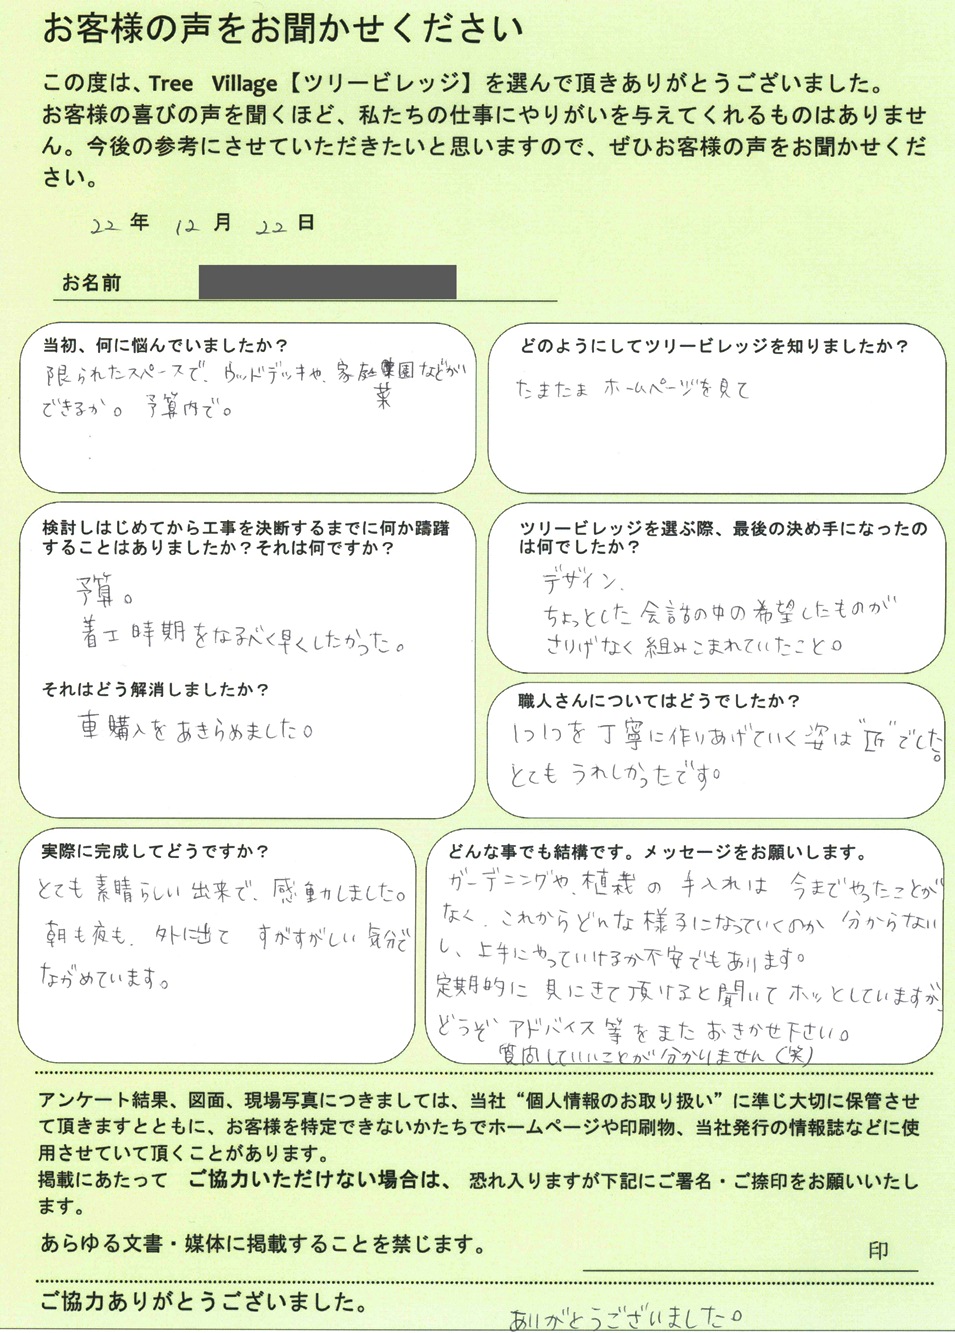 お客様の声をお聞かせください
この度は、Tree Village【ツリービレッジ】を選んで頂きありがとうございました。
お客様の喜びの声を聞くほど、私たちの仕事にやりがいを与えてくれるものはありませ
ん。今後の参考にさせていただきたいと思いますので、ぜひお客様の声をお聞かせくだ
さい。
22 年 12 月 22 日
お名前
当初、何に悩んでいましたか？
限られたスペースで、ウッドデッキや、家庭菜園などが
できるか。予算内で。
どのようにしてツリービレッジを知りましたか？
たまたま ホームページを見て
検討しはじめてから工事を決断するまでに何か躊躇
することはありましたか？それは何ですか？
予算。
着工時期をなるべく早くしたかった。
それはどう解消しましたか？
車購入をあきらめました。
ツリービレッジを選ぶ際、最後の決め手になったの
は何でしたか？
デザイン、
ちょっとした会話の中の希望したものが
さりげなく組みこまれていたこと。
職人さんについてはどうでしたか？
1つ1つを丁寧に作りあげていく姿は“匠”でした。
とてもうれしかったです。
実際に完成してどうですか？
とても素晴らしい出来で、感動しました。
朝も夜も、外に出て すがすがしい気分で
ながめています。
どんな事でも結構です。メッセージをお願いします。
ガーデニングや、植栽の手入れは 今までやったことが
なく、これからどんな様子になっていくのか 分からない
し、上手にやっていけるか不安でもあります。
定期的に見にきて頂けると聞いてホッとしていますが、
どうぞ アドバイス等をまたおきかせ下さい。
質問していいことが分かりません（笑）
アンケート結果、図面、現場写真につきましては、当社“個人情報のお取り扱い”に準じ大切に保管させ
て頂きますとともに、お客様を特定できないかたちでホームページや印刷物、当社発行の情報誌などに使
用させていて頂くことがあります。
掲載にあたって ご協力いただけない場合は、 恐れ入りますが下記にご署名・ご捺印をお願いいたし
ます。
あらゆる文書・媒体に掲載することを禁じます。
印
ご協力ありがとうございました。
ありがとうございました。